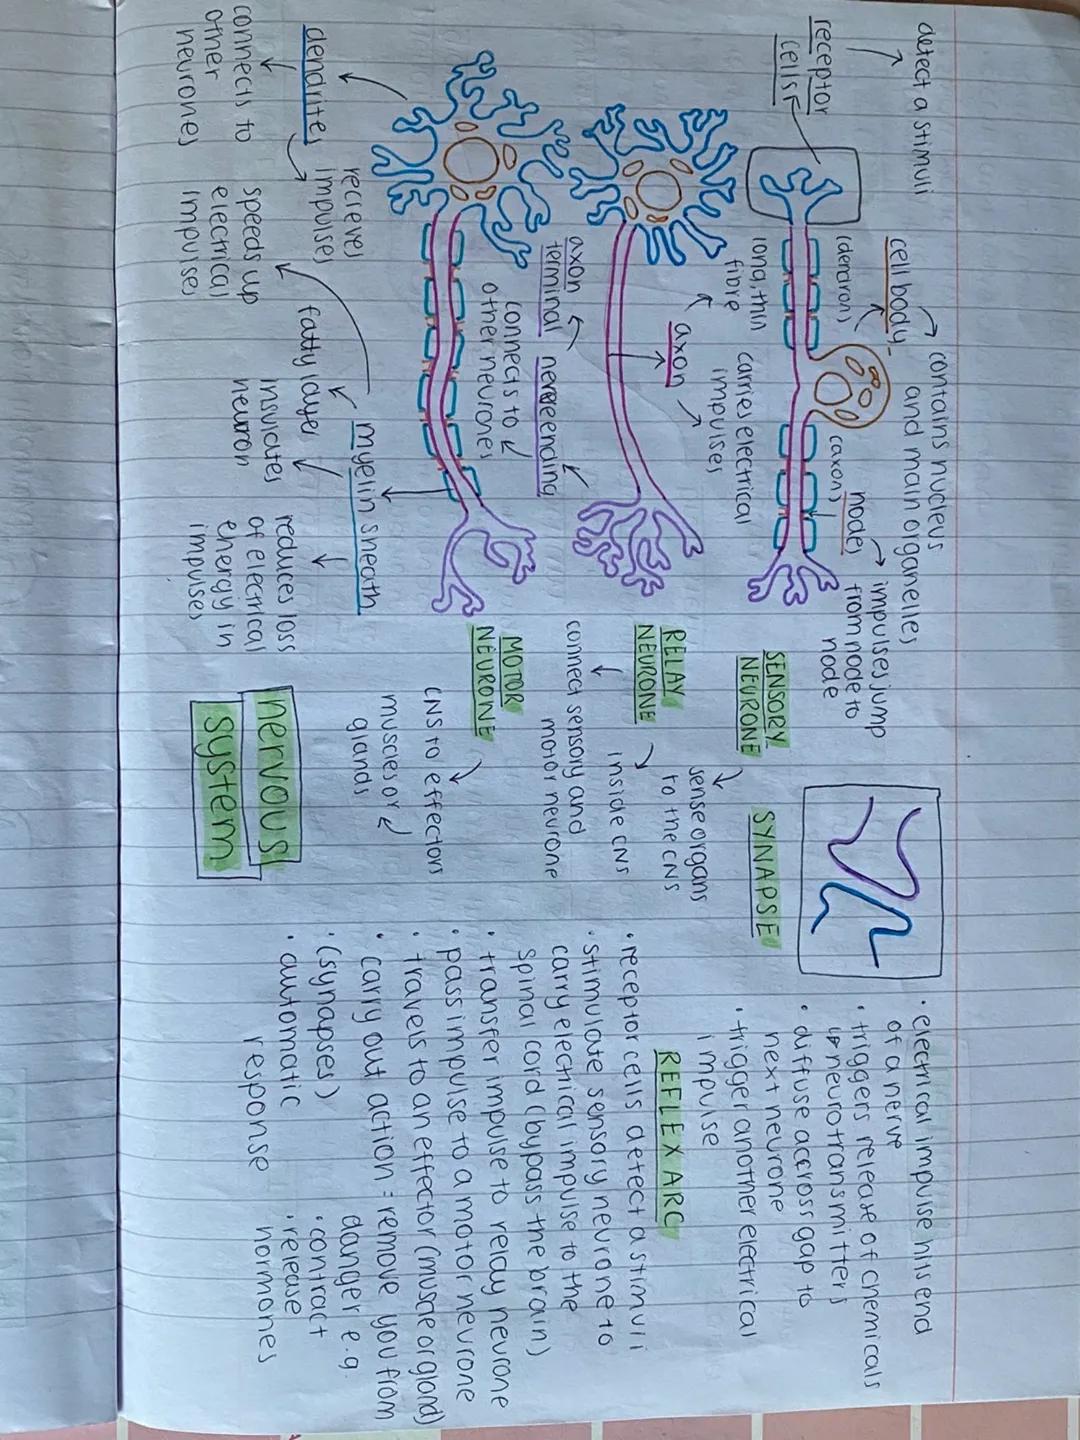 detect a stimuli
receptor
cells
cell body
contains nucleus
and main organelles
(dendron)
(axon)
nodes
impulses jump
from node to
node
SENSORY
NEURONE
sense organs
to the CNS
long, thin
fibre
axon
carries electrical
impulses
RELAY
NEURONE
inside CNS
connect sensory and
motor neurone
axon
terminal
nerve ending
connects to
other neurones
MOTOR
NEURONE
CNS to effectors
muscles or
glands
dendrites
recieves
impulses
connects to
other
neurones
myelin sheath
fatty layer
speeds up
electrical
impulses
insulates
neuron
reduces loss
of electrical
energy in
impulses
nervous
system
SYNAPSE
• electrical impulse hits end
of a nerve
• triggers release of chemicals
↳ neurotransmitters
• diffuse accross gap to
next neurone
• trigger another electrical
impulse
REFLEX ARC
• receptor cells detect a stimuli
• stimulate sensory neurone to
carry electrical impulse to the
spinal cord (bypass the brain)
• transfer impulse to relay neurone
• pass impulse to a motor neurone
• travels to an effector (muscle or gland)
• carry out action = remove you from
danger e.g.
• (synapses)
• contract
• automatic
response
• release
hormones